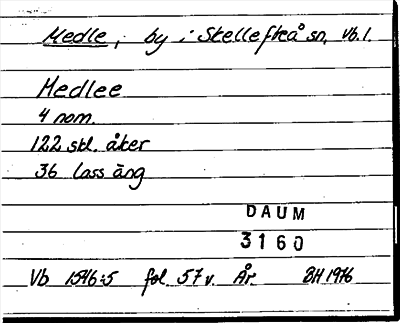 Medle, by i Skellefteå sn, Vb. l.
Medlee
4 nom.
122 skl. åker
36 lass äng
DAUM
3160
Vb 1546:5 fol. 57v. År. BH 1976